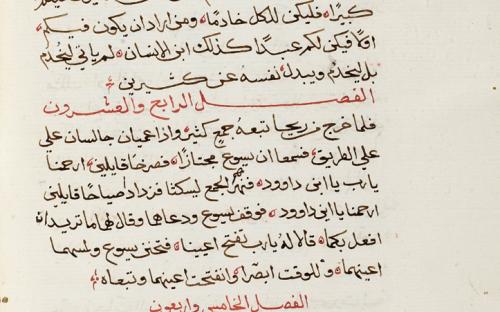 كبيرًا فليكن للكل خادمًا ومن اراد ان يكون فيكم
اولًا فيكن لكم عبدًا كذلك ابن الانسان لم ياتي ليُخدَم
بل ليخدم ويبدل نفسه عن كثيرين
الفصل الرابع والعشرون
فلما خرج من ريحا تبعه جمع كثير واذا عميان جالسان علي
علي الطريق فسمعا ان يسوع مجتازًا فصرخا قايلين ارحمنا
يارب يا ابن داوود فنهرهم الجمع ليسكتا فزدادا صياحًا قايلين
ارحمنا يا ابن داوود فوقف يسوع ودعاهما وقال لهما ما تريدان
افعل بكما قالا له يارب تفتح اعيننا فتحنن يسوع ولمسهما
اعينهما وللوقت ابصرا وانفتحت اعينهما وتبعاه
الفصل الخامس واربعون